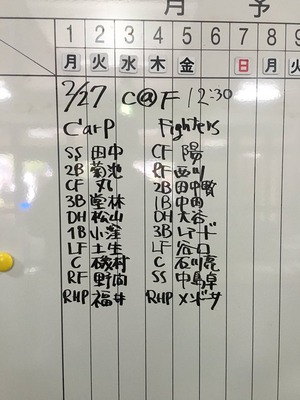 月 予
1 2 3 4 5 6 7 8 9
月 火 水 木 金 日 月 火
2/27 C@F 12:30
Carp Fighters
SS 田中 CF 陽
2B 菊池 RF 西川
CF 丸 2B 田中賢
3B 堂林 1B 中田
DH 松山 DH 大谷
1B 小窪 3B レアード
LF 土生 LF 谷口
C 磯村 C 石川亮
RF 野間 SS 中島卓
RHP 福井 RHP メンドーサ